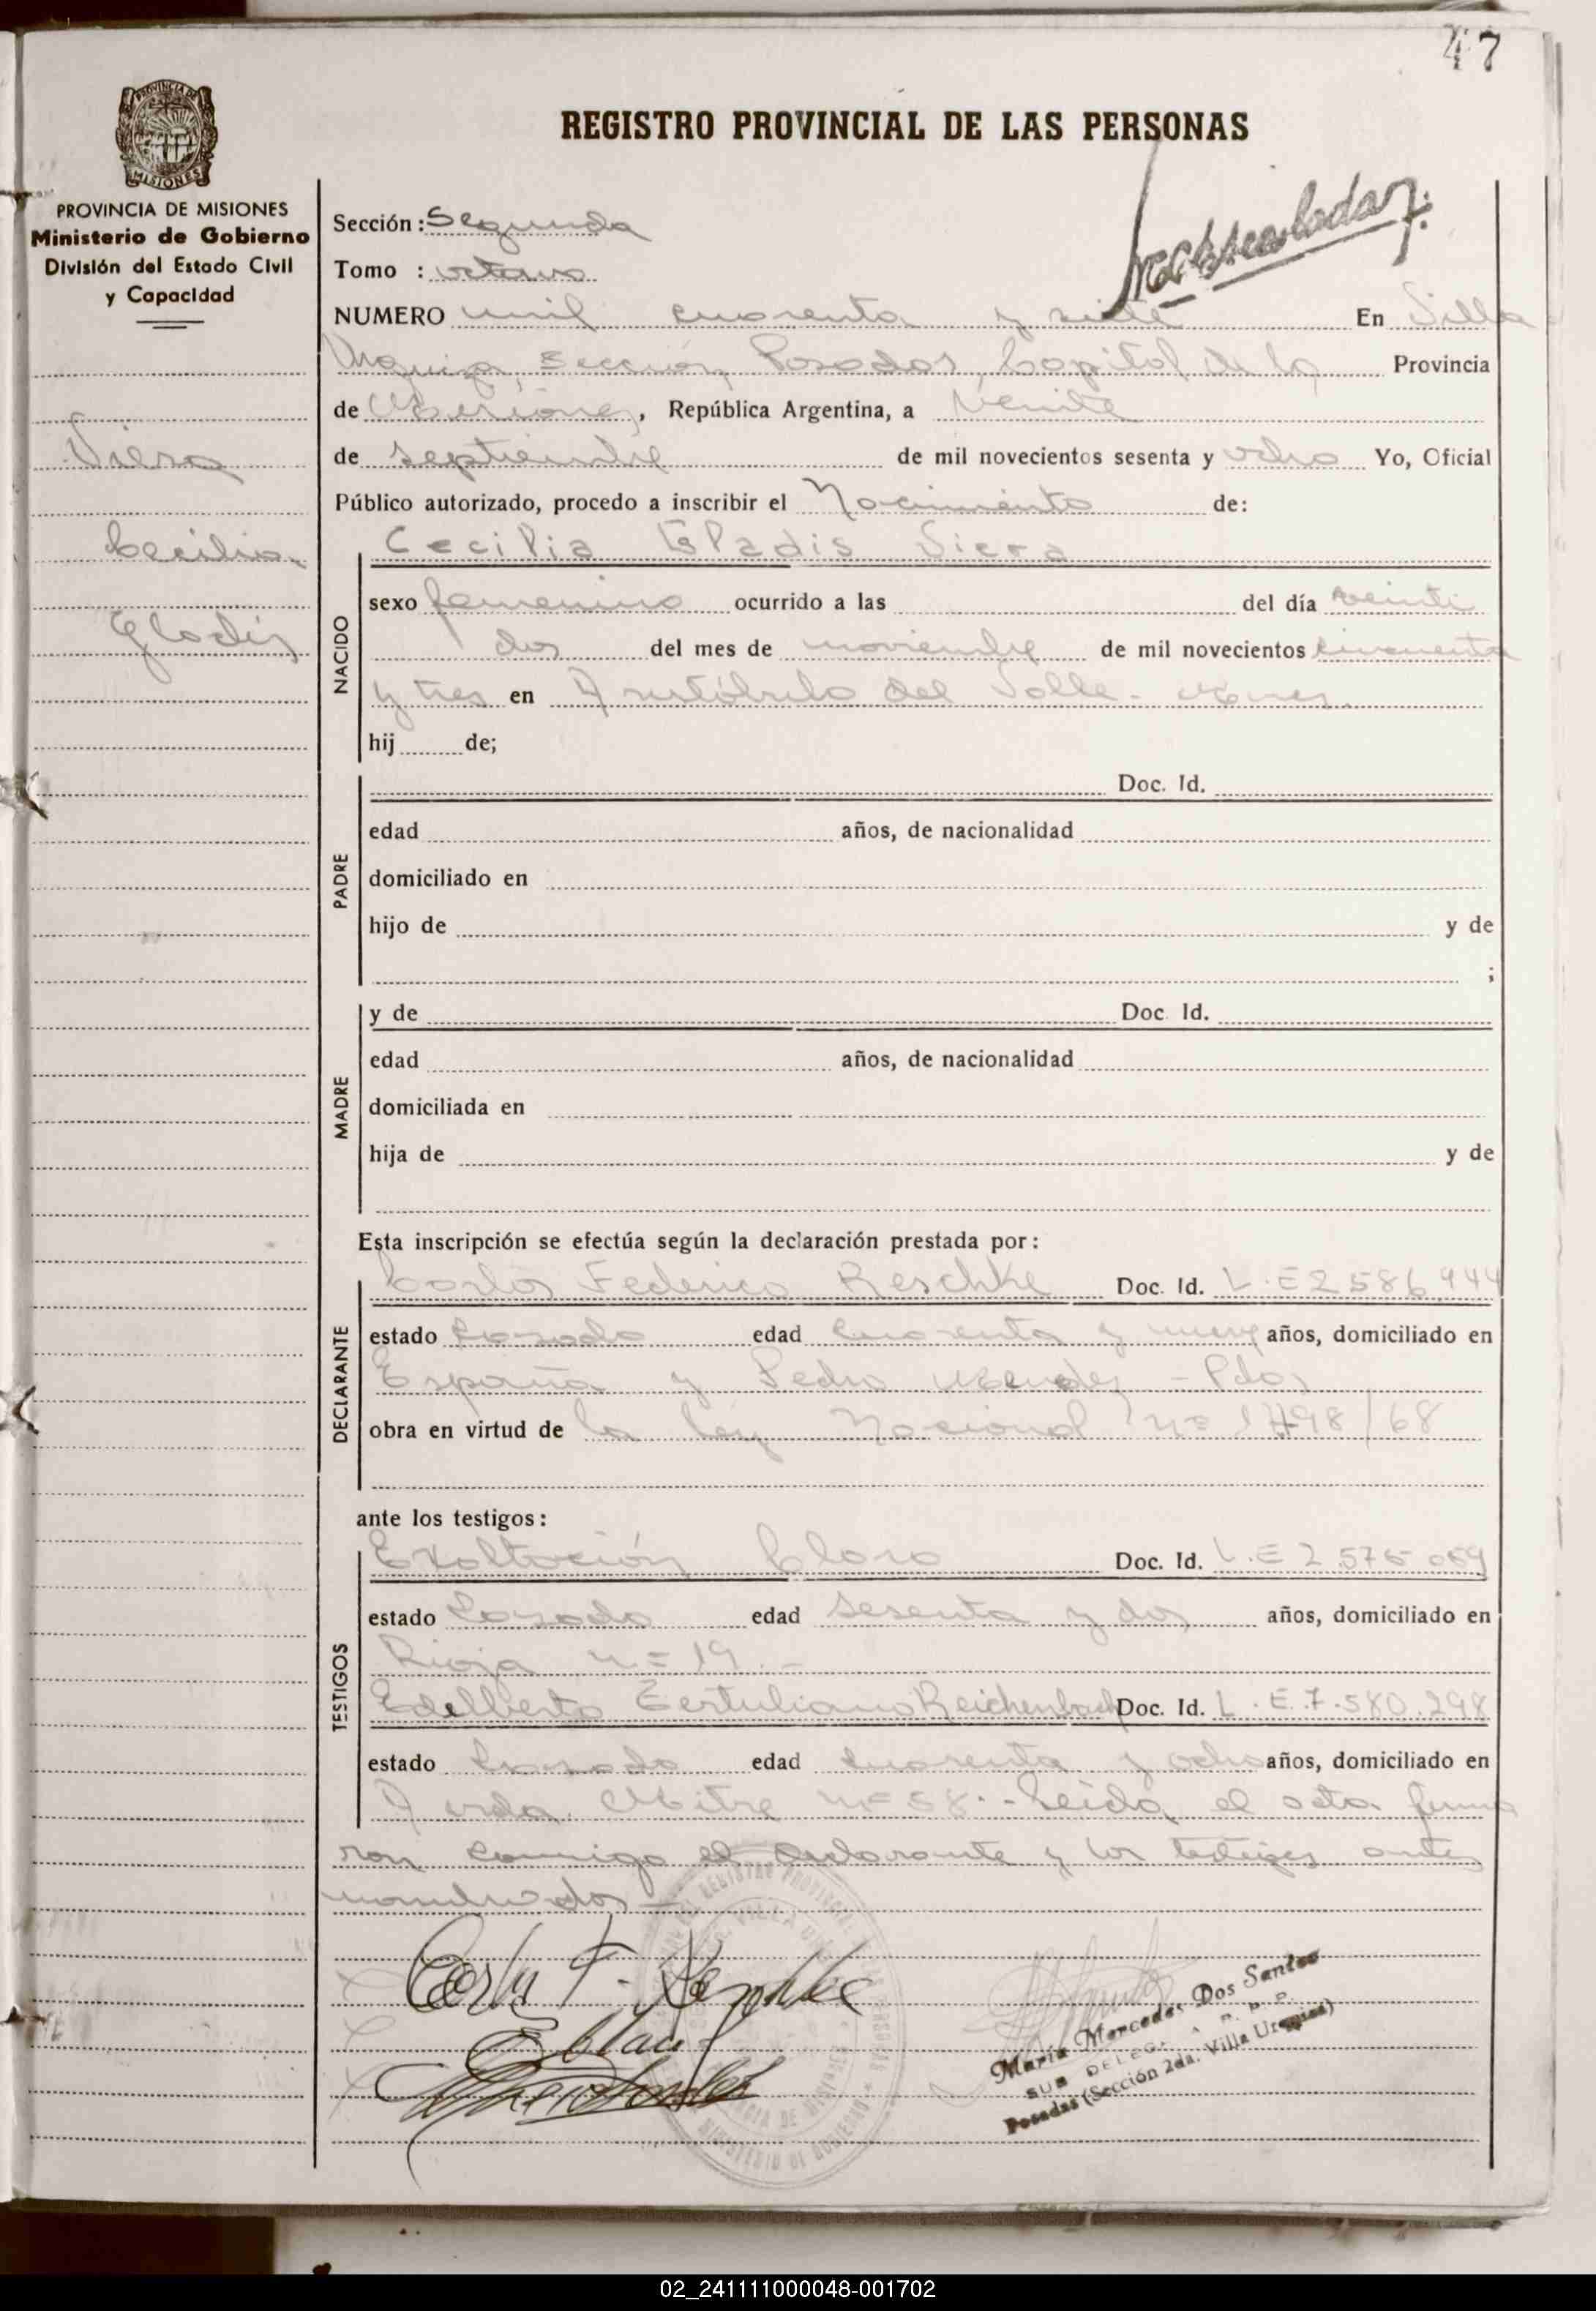 47
REGISTRO PROVINCIAL DE LAS PERSONAS
PROVINCIA DE MISIONES
Ministerio de Gobierno
División del Estado Civil
y Capacidad
Viera
Cecilia
Gladis
Sección: Segunda
Tomo : octavo
NUMERO mil cuarenta y siete En Villa
Urquiza, Sección, Posadas, Capital de la Provincia
de Misiones, República Argentina, a veinte
de septiembre de mil novecientos sesenta y ocho Yo, Oficial
Público autorizado, procedo a inscribir el Nacimiento de:
NACIDO
Cecilia Gladis Viera
sexo femenino ocurrido a las del día veinti
dos del mes de noviembre de mil novecientos cincuenta
y tres en Aristóbulo del Valle - Mnes.
hij de;
PADRE
Doc. Id.
edad años, de nacionalidad
domiciliado en
hijo de y de
;
MADRE
y de Doc. Id.
edad años, de nacionalidad
domiciliada en
hija de y de
Esta inscripción se efectúa según la declaración prestada por:
DECLARANTE
Carlos Federico Reschke Doc. Id. L.E 2586.944
estado Casado edad cuarenta y nueve años, domiciliado en
España y Pedro Mendez - Pdas
obra en virtud de la ley Nacional nº 1798/68
ante los testigos:
TESTIGOS
Exaltación Claro Doc. Id. L.E 2.575.059
estado Casado edad sesenta y dos años, domiciliado en
Rioja nº 19.-
Edelberto Tertuliano Reichenbach Doc. Id. L.E.7.580.298
estado Casado edad cuarenta y ocho años, domiciliado en
Avda. Mitre nº 58.- Leida el acta firma
ron conmigo el declarante y los testigos antes
nombrados
Carlos F. Reschke
María Mercedes Dos Santos
SUB DELEG.
Posadas (Sección 2da. Villa Urquiza)
02_241111000048-001702